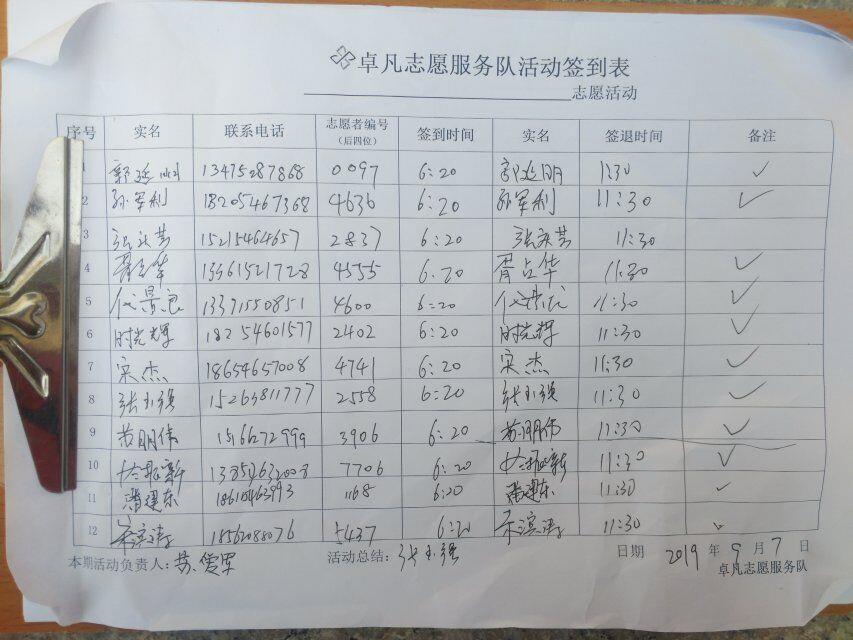 卓凡志愿服务队活动签到表
志愿活动
序号 实名 联系电话 志愿者编号(后四位) 签到时间 实名 签退时间 备注
1 郭延明 13475287868 0097 6:20 郭延明 11:30 ✓
2 孙军利 18205467368 4636 6:20 孙军利 11:30 ✓
3 15215464657 2837 6:20 11:30
4 胥占华 13561521728 4555 6:20 胥占华 11:30 ✓
5 代景良 13371550851 4600 6:20 11:30 ✓
6 时光辉 18254601577 2402 6:20 时光辉 11:30 ✓
7 宋杰 18654657008 4741 6:20 宋杰 11:30 ✓
8 张小强 15263811777 2558 6:20 张小强 11:30 ✓
9 苏明伟 3906 6:20 苏明伟 11:30 ✓
10 7706 6:20 11:30 ✓
11 1168 6:20 11:30 ✓
12 5437 6:20 11:30
本期活动负责人: 苏俊军 活动总结: 张小强 日期 2019 年 9 月 7 日
卓凡志愿服务队